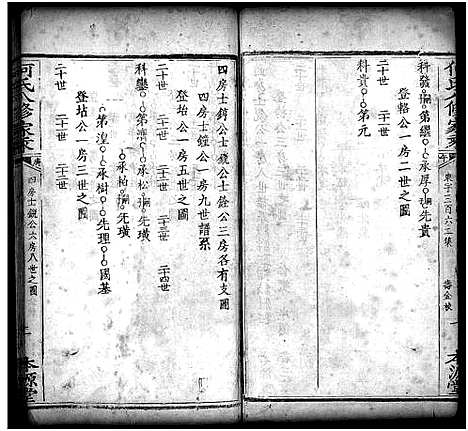 何氏八修家
科發 嗣 第纓 承厚 嗣 先貴
登輅公一房二世之圖
二十世 二十一世
科貴 第元
壽金校
本源堂
四房士錡公士錢公士餘公三房各有支圖
四房士鐘公一房九世譜系
登坫公一房五世之圖
二十世 二十一世 二十二世 二十三世 二十四世
科鑾 第濤 承松 嗣 先璜
承柏 嗣 先璜
第湟 承樹 先理 國基
登坫公一房三世之圖
二十世 二十一世 二十二世
何氏八修家
四房士鏡公六房八世之圖
本源堂